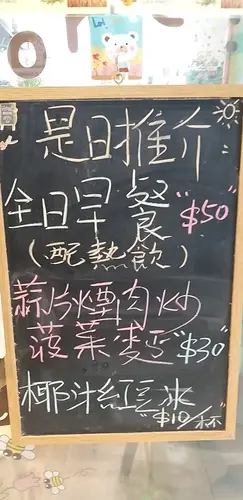 是日推介
全日早餐 "$50"
(配熱飲)
蒜片煙肉炒
菠菜麥 "$30"
椰汁紅豆冰
"$10/杯"